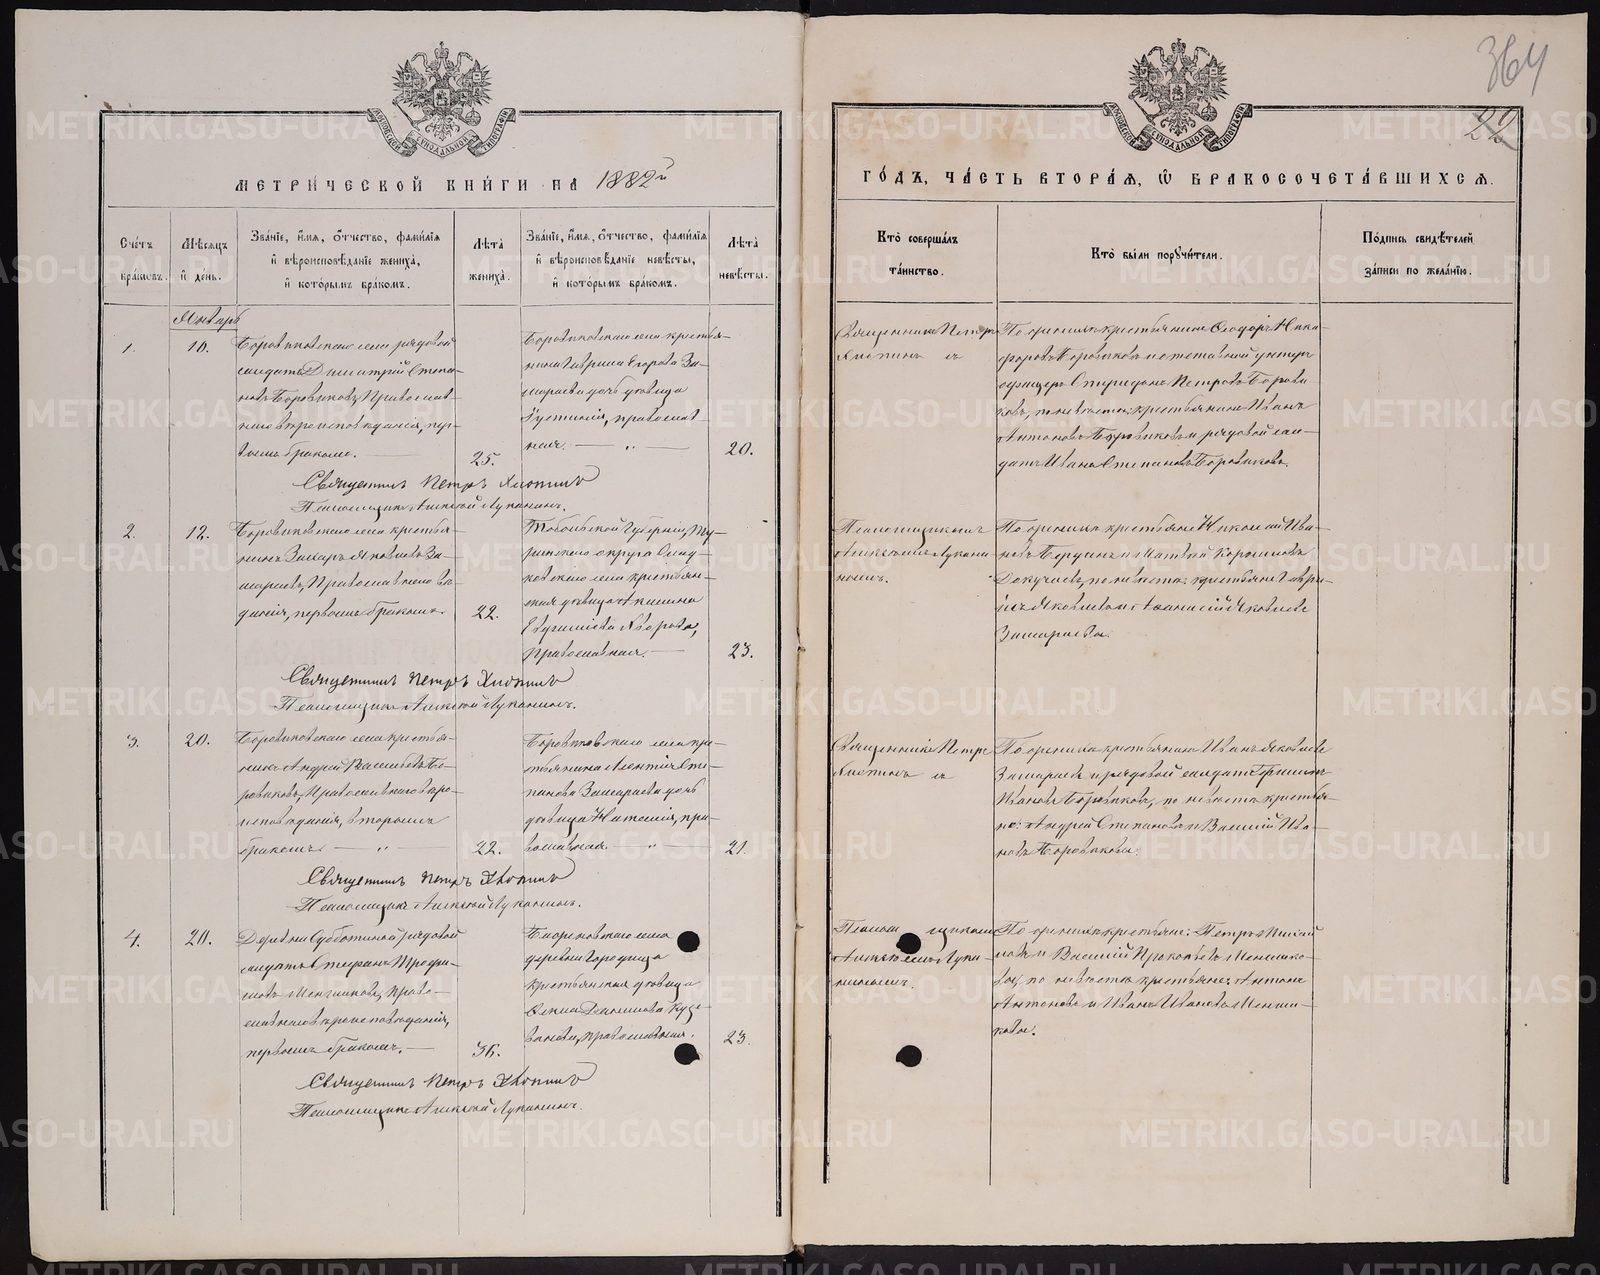 364
22
МЕТРИ́ЧЕСКОЙ КНИ́ГИ НА 1882й
ГО́ДЪ, ЧА́СТЬ ВТОРА́Я, Ѡ БРАКОСОЧЕТА́ВШИХСЯ.
Сче́тъ бра́ковъ.
Мѣ́сяцъ и де́нь.
Зва́нїе, и́мя, о́тчество, фами́лїя и вѣроисповѣ́данїе жениха̀, и кото́рымъ бра́комъ.
Лѣ́та жениха̀.
Зва́нїе, и́мя, о́тчество, фами́лїя и вѣроисповѣ́данїе невѣ́сты, и кото́рымъ бра́комъ.
Лѣ́та невѣ́сты.
Кто̀ соверша́лъ та́инство.
Кто̀ бы́ли порꙋчи́тели.
По́дпись свидѣ́телей за́писи по жела́нїю.
Январь
1.
10.
Боровиковскаго села рядовой
солдатъ Димитрій Степа-
новъ Боровиковъ, Православ-
наго вѣроисповѣданія, пер-
вымъ бракомъ.
25.
Боровиковскаго села крестья-
нина Гавриила Егорова За-
мараева дочь дѣвица
Іустинія, православ-
ная.
20.
Священникъ Петръ
По женихѣ крестьянинъ Ѳеодоръ Ника-
форовъ Боровиковъ и отставной унтеръ
офицеръ Спиридонъ Петровъ Борови-
ковъ, по невѣстѣ: крестьянинъ Иванъ
Антоновъ Боровиковъ и рядовой сол-
датъ Иванъ Степановъ Боровиковъ.
Священникъ Петръ
Псаломщикъ Алексѣй Луканинъ.
2.
12.
Боровиковскаго села крестья-
нинъ Захаръ Яковлевъ За-
мараевъ, Православнаго вѣ-
первымъ бракомъ.
22.
Тобольской Губерніи, Ту-
ринскаго округа
села крестьян-
ская дѣвица Акилина
православная.
23.
Псаломщикъ
Алексѣй Лукани-
нымъ.
По женихѣ крестьяне Николай Ива-
новъ и Матвѣй
по невѣстѣ: крестьяне Гаври-
илъ Яковлевъ и Аѳанасій Яковлевъ
Замараевы.
Священникъ Петръ
Псаломщикъ Алексѣй Луканинъ.
3.
20.
Боровиковскаго села крестья-
нинъ Андрей Васильевъ Бо-
ровиковъ, Православнаго вѣро-
исповѣданія, вторымъ
бракомъ.
22.
Боровиковскаго села кре-
стьянина Леонтія Сте-
панова Замараева дочь
дѣвица Наталія, пра-
вославная.
21.
Священникъ Петръ
По женихѣ крестьянинъ Иванъ Яковлевъ
Замараевъ и рядовой солдатъ Григорій
Ивановъ Боровиковъ, по невѣстѣ крестья-
не: Андрей Степановъ и Василій Ива-
новъ Боровиковы.
Священникъ Петръ
Псаломщикъ Алексѣй Луканинъ.
4.
20.
Деревни Субботиной рядовой
солдатъ Стефанъ Трофи-
мовъ Меншиковъ, Право-
славнаго вѣроисповѣданія,
первымъ бракомъ.
36.
села
деревни Городища
крестьянская дѣвица
православная.
23.
Псаломщикомъ
Алексѣемъ Лука-
нинымъ.
По женихѣ крестьяне: Петръ
и Василій Прокопьевъ Меншико-
вы, по невѣстѣ крестьяне: Антонъ
Антоновъ и Иванъ Ивановъ Менши-
ковы.
Священникъ Петръ
Псаломщикъ Алексѣй Луканинъ.
METRIKI.GASO-URAL.RU